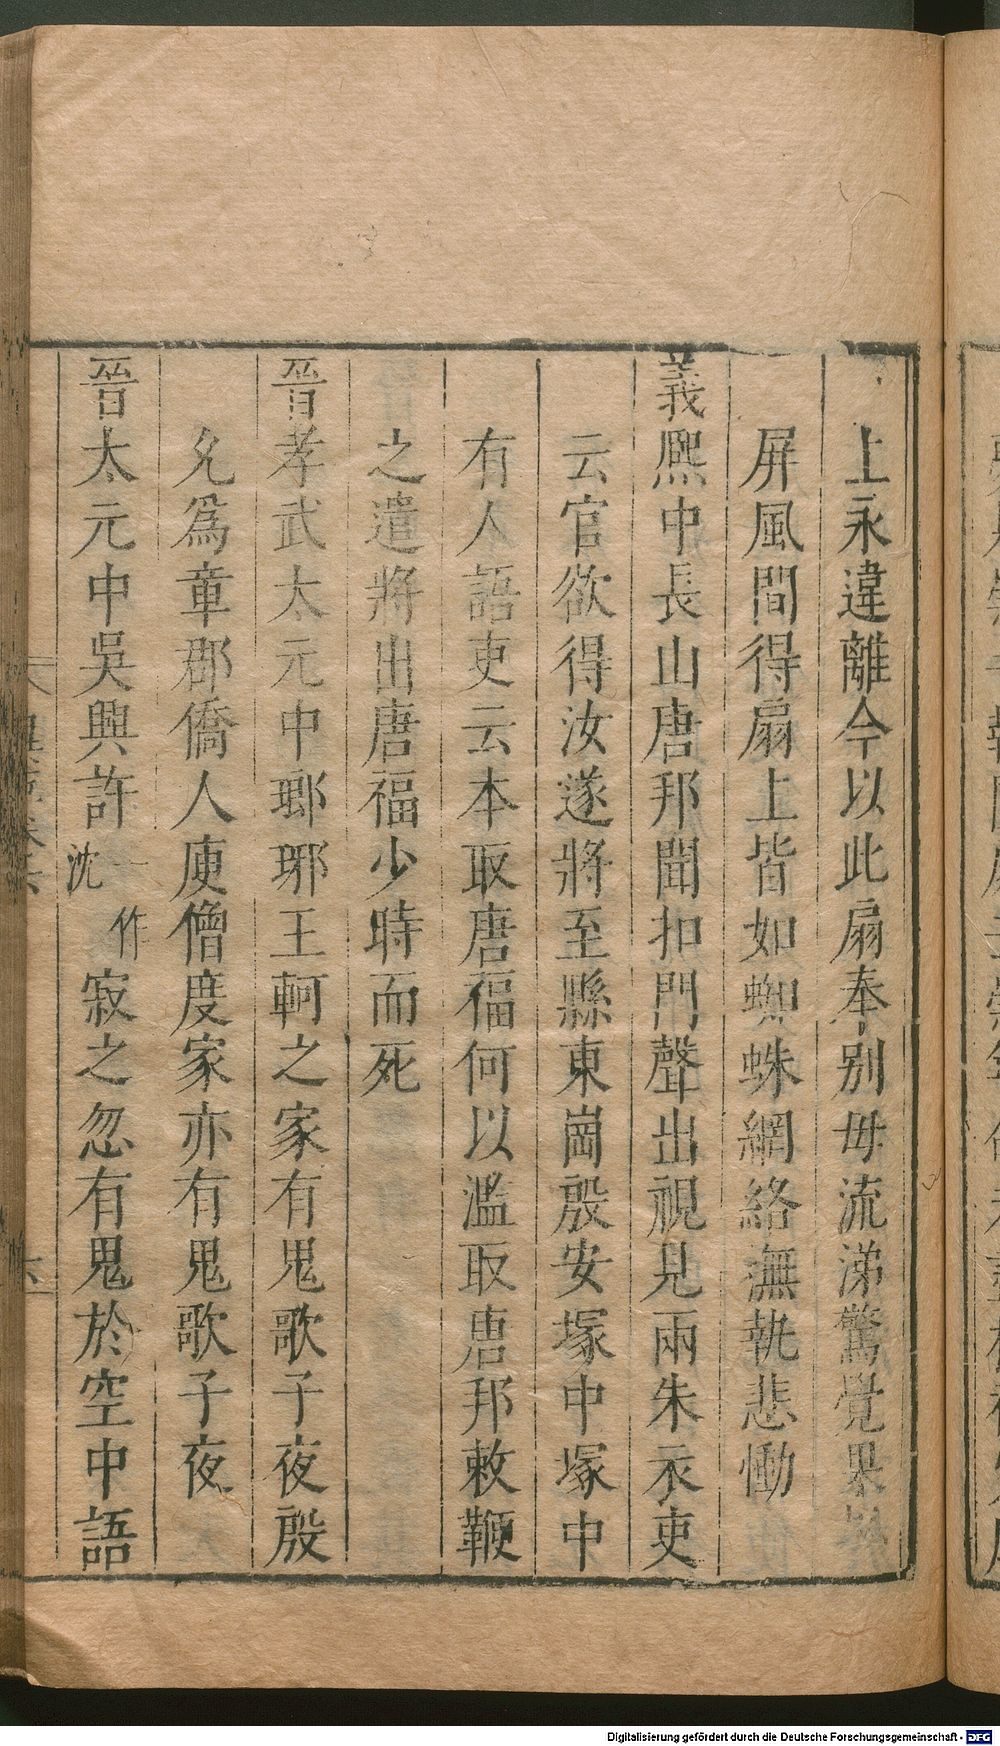 上永違離今以此扇奉别毋流涕驚覺果
屏風間得扇上皆如蜘蛛網絡撫執悲慟
義熈中長山唐邦聞扣門聲出視見兩朱衣吏
云官欲得汝遂將至縣東崗殷安塚中塚中
有人語吏云本取唐福何以濫取唐邦敕鞭
之遣將出唐福少時而死
晉孝武太元中瑯琊王軻之家有鬼歌子夜殷
允爲章郡僑人庾僧度家亦有鬼歌子夜
晉太元中吳興許一作沈寂之忽有鬼於空中語
六
Digitalisierung gefördert durch die Deutsche Forschungsgemeinschaft - DFG